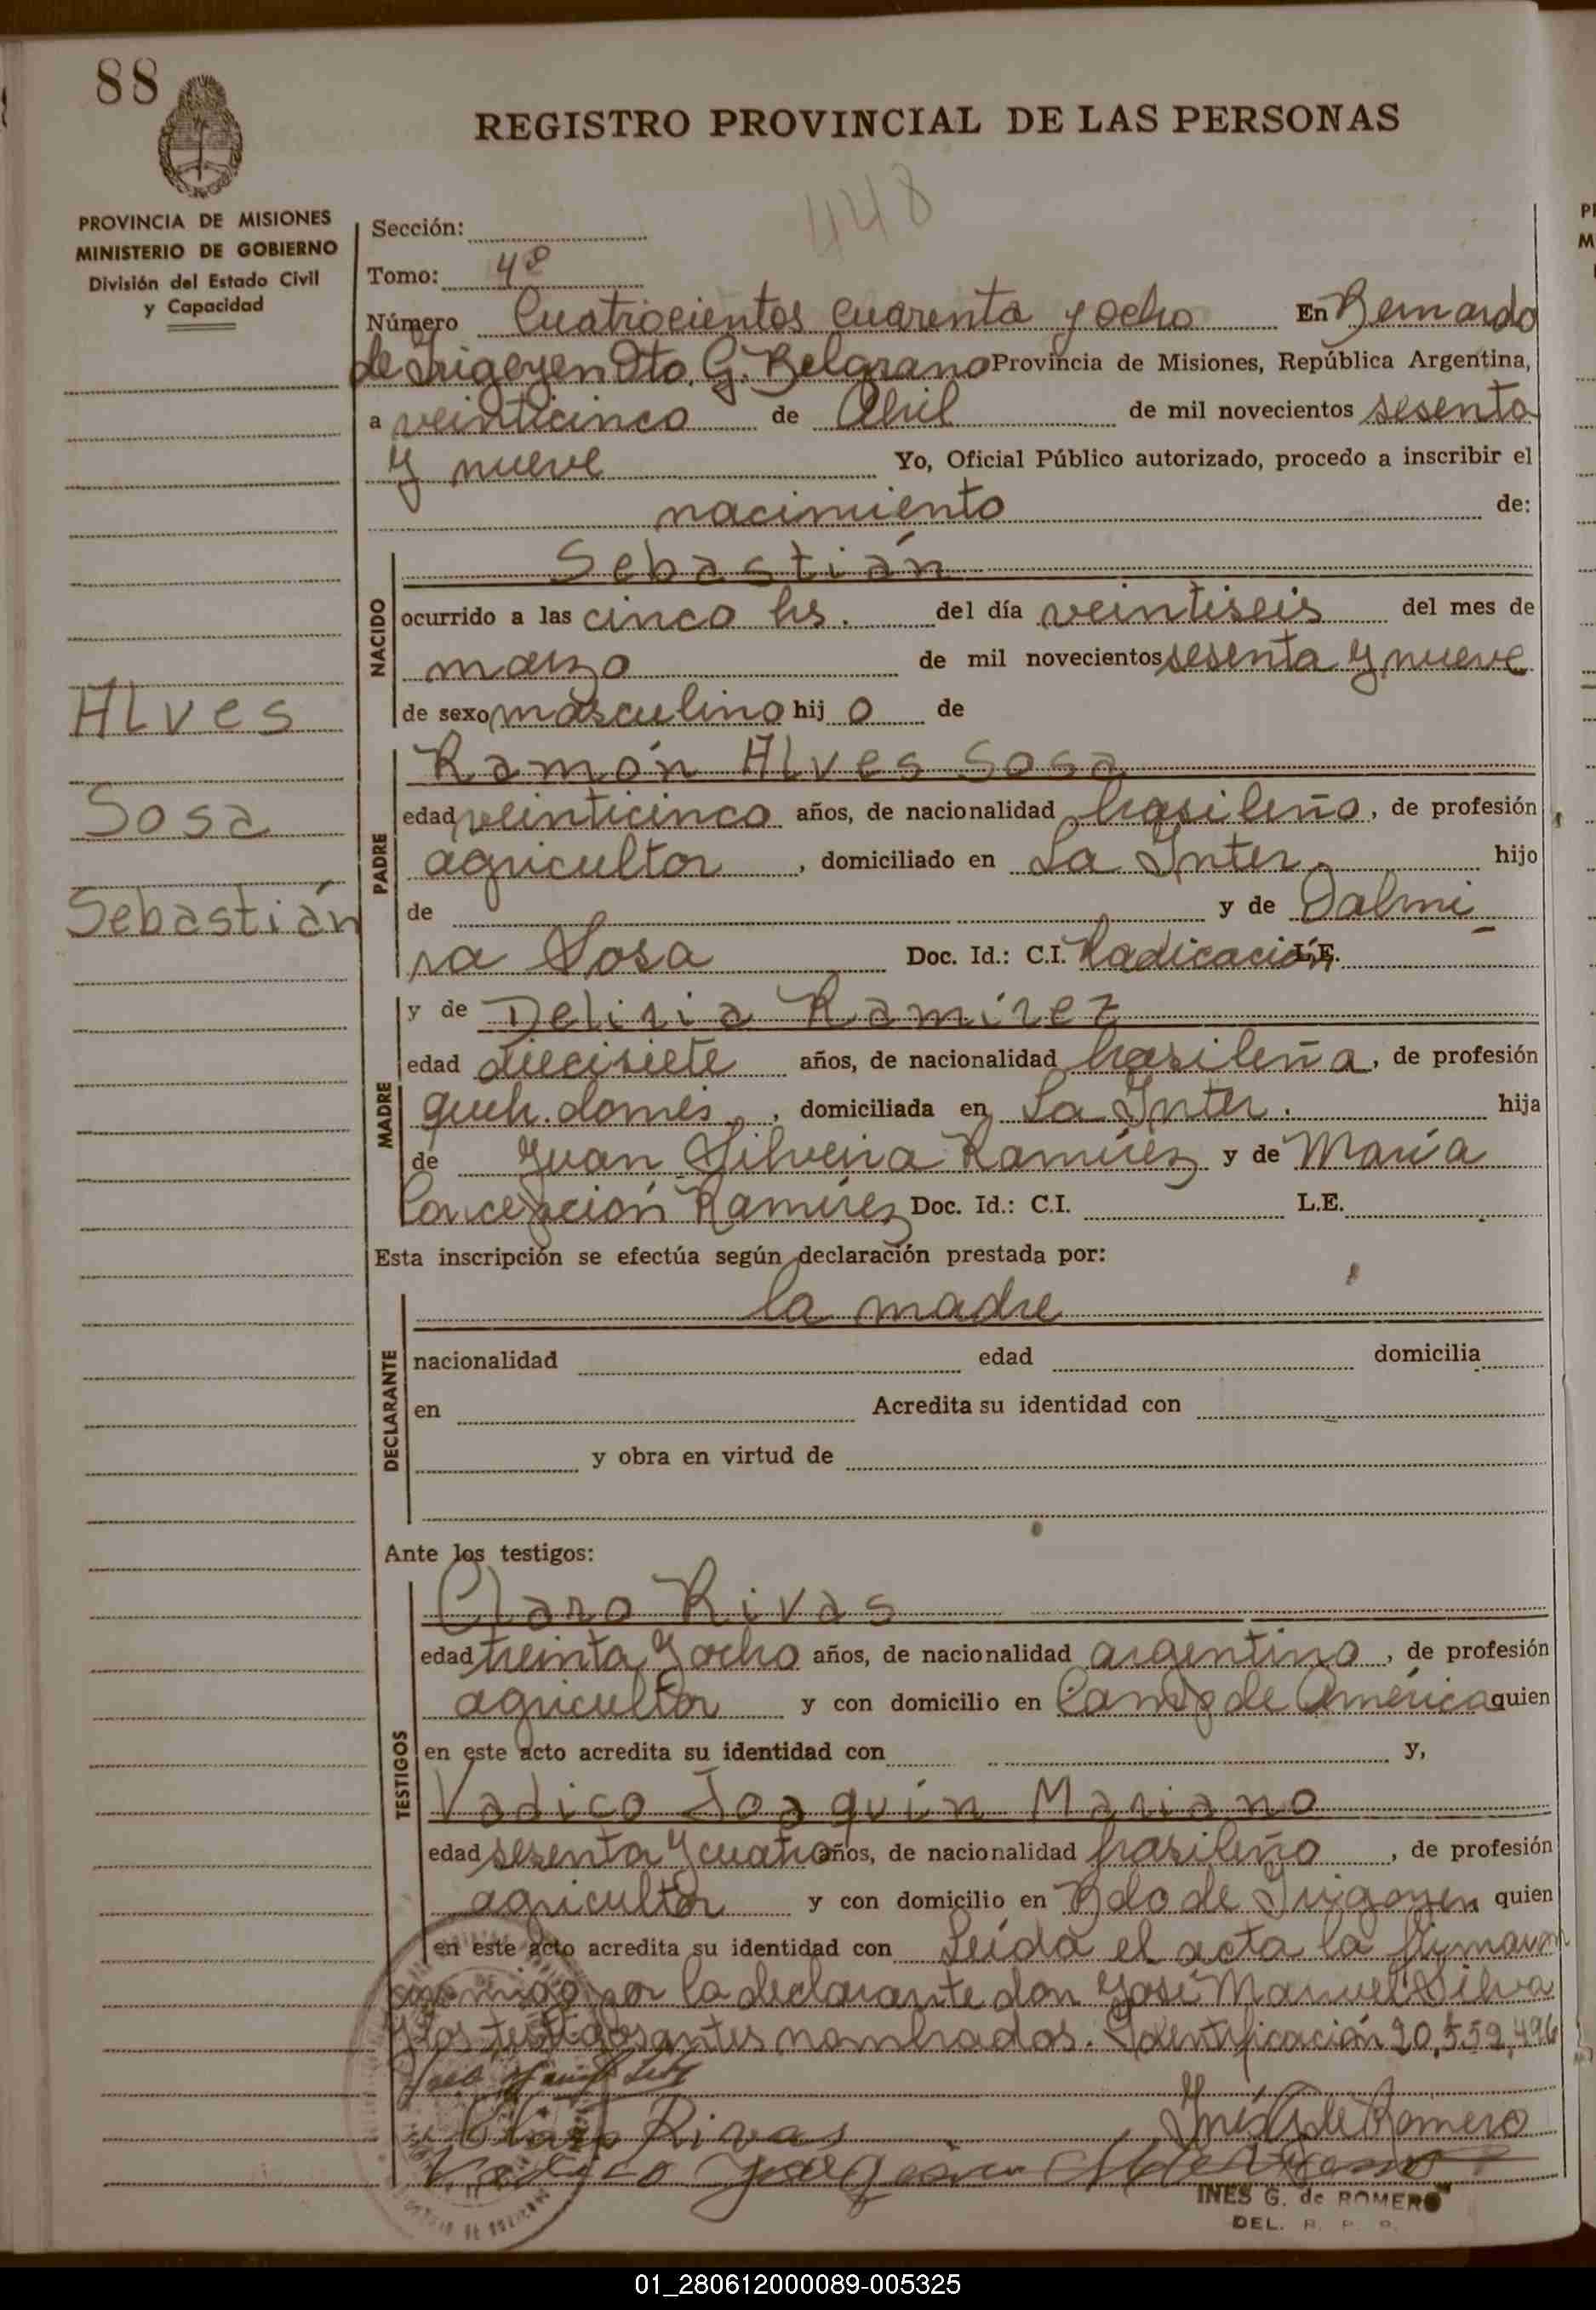 88
REGISTRO PROVINCIAL DE LAS PERSONAS
448
PROVINCIA DE MISIONES
MINISTERIO DE GOBIERNO
División del Estado Civil
y Capacidad
Sección:
Tomo: 4º
Número Cuatrocientos cuarenta y ocho En Bernardo
de Irigoyen Dto. G. Belgrano Provincia de Misiones, República Argentina,
a veinticinco de Abril de mil novecientos sesenta
y nueve Yo, Oficial Público autorizado, procedo a inscribir el
nacimiento de:
NACIDO
Sebastián
ocurrido a las cinco hs. del día veintiseis del mes de
marzo de mil novecientos sesenta y nueve
de sexo masculino hij o de
Alves
Sosa
Sebastián
PADRE
Ramón Alves Sosa
edad veinticinco años, de nacionalidad brasileño, de profesión
agricultor, domiciliado en La Inter. hijo
de y de Dalmi
ra Sosa Doc. Id.: C.I. Radicación L.E.
MADRE
y de Deliria Ramírez
edad diecisiete años, de nacionalidad brasileña, de profesión
queh. domés., domiciliada en La Inter. hija
de Juan Silveira Ramírez y de María
Concepción Ramírez Doc. Id.: C.I. L.E.
Esta inscripción se efectúa según declaración prestada por:
DECLARANTE
la madre
nacionalidad edad domicilia
en Acredita su identidad con
y obra en virtud de
Ante los testigos:
TESTIGOS
Claro Rivas
edad treinta y ocho años, de nacionalidad argentino, de profesión
agricultor y con domicilio en Camp de América quien
en este acto acredita su identidad con y,
Vadico Joaquín Mariano
edad sesenta y cuatro años, de nacionalidad brasileño, de profesión
agricultor y con domicilio en Bdo de Irigoyen quien
en este acto acredita su identidad con Leída el acta la firmaron
conmigo por la declarante don José Manuel Silva
y los testigos antes nombrados. Identificación 20,559,496
Claro Rivas
Inés G de Romero
Vadico
INES G. de ROMERO
DEL. R. P. P.
01_280612000089-005325